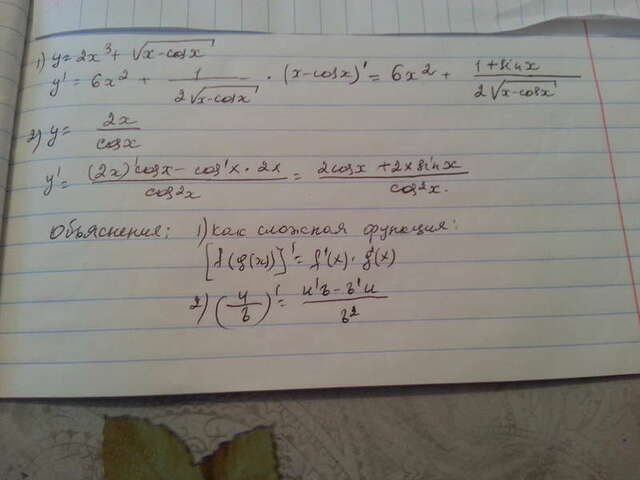 1) y = 2x³ + √(x-cosx)
y' = 6x² + 1/(2√(x-cosx)) · (x-cosx)' = 6x² + (1+sinx)/(2√(x-cosx))
2) y = 2x/cosx
y' = ((2x)'cosx - cos'x · 2x)/cos²x = (2cosx + 2x sinx)/cos²x.
Объяснения: 1) как сложная функция:
[f(g(x))]' = f'(x) · g'(x)
2) (u/в)' = (u'в - в'u)/в²